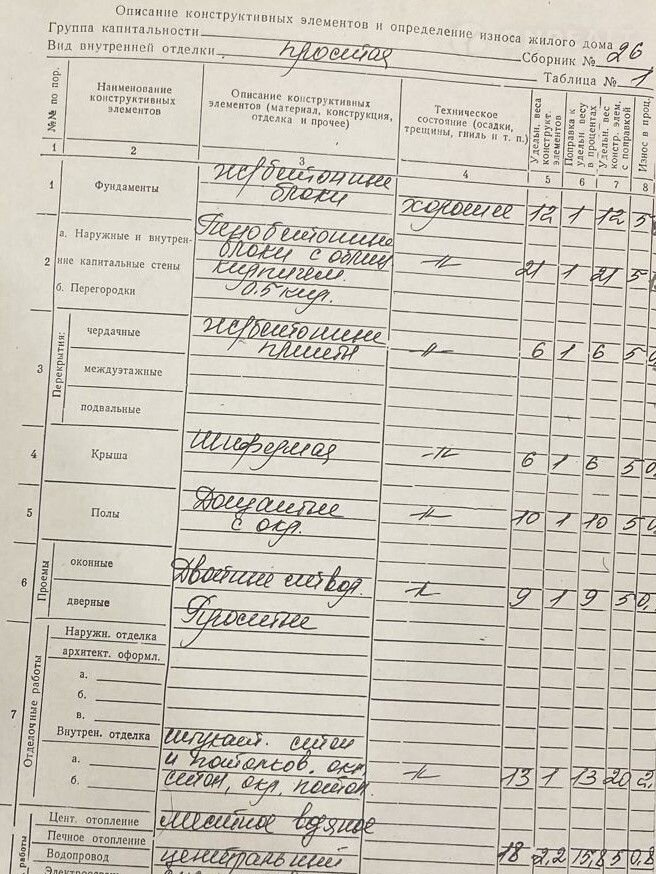 Описание конструктивных элементов и определение износа жилого дома
Группа капитальности
Вид внутренней отделки простая Сборник № 26
Таблица № 1
№№ по пор. Наименование конструктивных элементов Описание конструктивных элементов (материал, конструкция, отделка и прочее) Техническое состояние (осадки, трещины, гниль и т. п.) Удельн. веса конструкт. элементов Поправка к удельн весу в процентах Удельн. вес констр. элем. с поправкой Износ в проц.
1 2 3 4 5 6 7 8
1 Фундаменты ж/бетонные
блоки хорошее 12 1 12 5
2 а. Наружные и внутрен- Пенобетонные
ние капитальные стены блоки с облиц
кирпичем. -//- 21 1 21 5
б. Перегородки 0.5 кир.
3 Перекрытия: чердачные ж/бетонные
плиты -//- 6 1 6 5 0,
междуэтажные
подвальные
4 Крыша шиферная -//- 6 1 6 5 0,
5 Полы Дощатые
с окр. -//- 10 1 10 5 0,
6 Проемы оконные Двойные створ. -//- 9 1 9 5 0,
дверные Простые
7 Отделочные работы Наружн. отделка
архитект. оформл.
а.
б.
в.
Внутрен. отделка штукат. стен
а. и потолков, окр.
б. стен, окр. потол. -//- 13 1 13 20 2,
работы Цент. отопление местное водяное
Печное отопление
Водопровод центральный 18 2,2 15,8 5 0,8